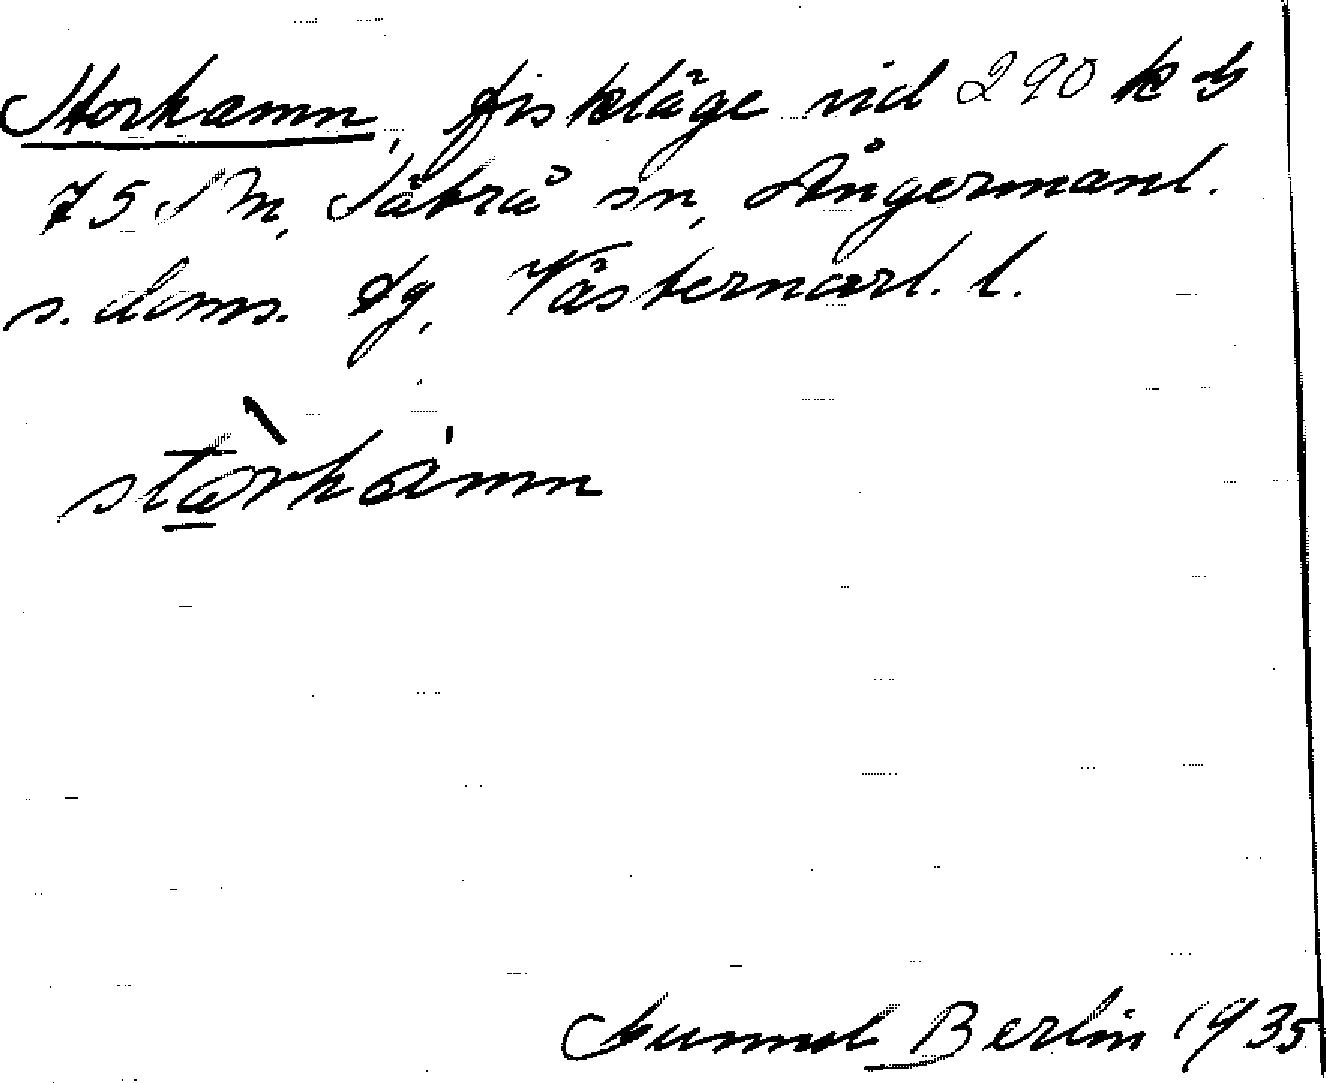 Storhamn, fiskläge vid 290 kv
75 Sm, Säbrå sn, Ångermanl.
s. doms. tg, Västernorrl. l.
stòrhámn
Gunnel Berlin 1935